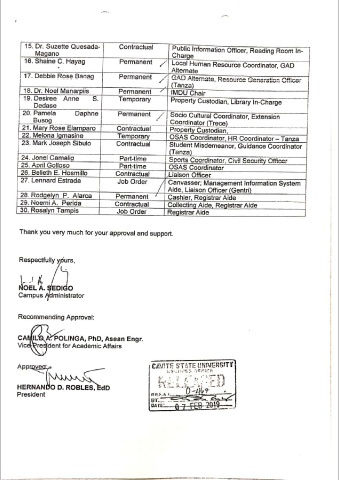 15. Dr. Suzette Quesada- Contractual Public Information Officer, Reading Room In-
Magano Charge
16. Shaine C. Hayag Permanent Local Human Resource Coordinator, GAD
Alternate
17. Debbie Rose Banag Permanent GAD Alternate, Resource Generation Officer
(Tanza)
18. Dr. Noel Manarpiis Permanent IMDU Chair
19. Desiree Anne S. Temporary Property Custodian, Library In-Charge
Dedase
20. Pamela Daphne Permanent Socio Cultural Coordinator, Extension
Busog Coordinator (Trece)
21. Mary Rose Elamparo Contractual Property Custodian,
22. Melona Igmasine Temporary OSAS Coordinator, HR Coordinator – Tanza
23. Mark Joseph Sibulo Contractual Student Misdemeanor, Guidance Coordinator
(Tanza)
24. Jonel Camalig Part-time Sports Coordinator, Civil Security Officer
25. April Part-time OSAS Coordinator
26. E. Hosmillo Contractual Liaison Officer
27. Lennard Estrada Job Order Canvasser, Management Information System
Aide, Liaison Officer (Gentri)
28. P. Permanent Cashier, Registrar Aide
29. Noemi A. Perida Contractual Collecting Aide, Registrar Aide
30. Rosalyn Tampis Job Order Registrar Aide
Thank you very much for your approval and support.
Respectfully yours,
NOEL A. SEDIGO
Campus Administrator
Recommending Approval:
CAMILO A. POLINGA, PhD, Asean Engr.
Vice President for Academic Affairs
Approved:
HERNANDO D. ROBLES, EdD
President
CAVITE STATE UNIVERSITY
RELEASED
BY:
DATE: 07 FEB 2019